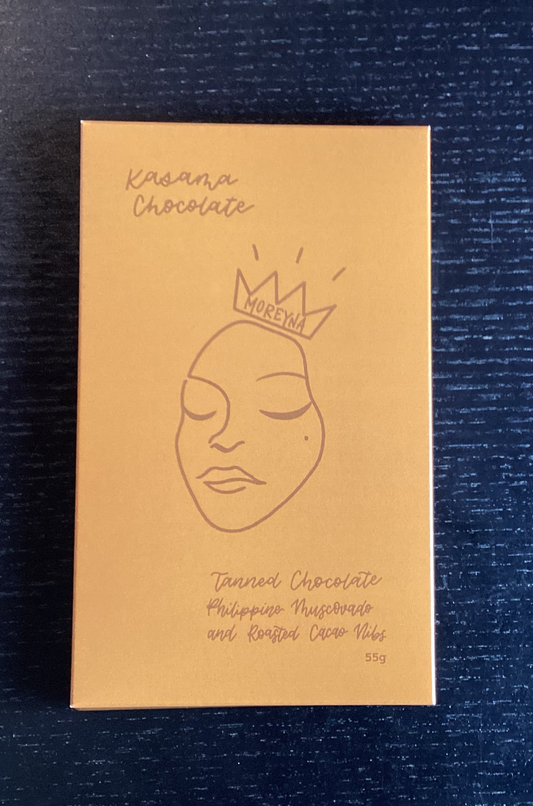 Kasama
Chocolate
MOREYNA
Tanned Chocolate
Philippine Muscovado
and Roasted Cacao Nibs
55g